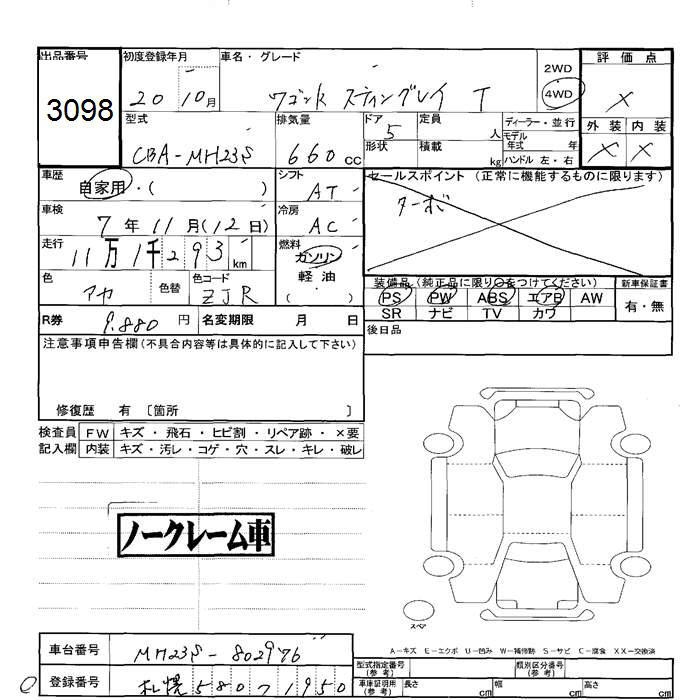 出品番号 初度登録年月 車名・グレード 2WD 評価点
3098 20 10月 ワゴンR スティングレイ T 4WD ×
型式 排気量 ドア 定員 ディーラー・並行 外装 内装
CBA-MH23S 660cc 5 人 モデル年式 年 × ×
形状 積載 kg ハンドル 左・右
車歴 シフト セールスポイント (正常に機能するものに限ります)
自家用・( ) AT ターボ
車検 冷房
7年11月(12日) AC
走行 燃料
11万1千293km ガソリン
軽油
色 色替 色コード ( ) 装備品(純正品に限り○をつけてください) 新車保証書
アカ ZJR PS PW ABS エアB AW 有・無
R券 9.880円 名変期限 月 日 SR ナビ TV カワ
注意事項申告欄(不具合内容等は具体的に記入して下さい) 後日品
修復歴 有 〔箇所 〕
検査員 FW キズ・飛石・ヒビ割・リペア跡・×要
記入欄 内装 キズ・汚レ・コゲ・穴・スレ・キレ・破レ
ノークレーム車
スペア
A-キズ E-エクボ U-凹み W-補修跡 S-サビ C-腐食 XX-交換済
車台番号 MH23S-802976 型式指定番号(参考) 類別区分番号(参考)
登録番号 札幌 580 ワ 1950 車庫証明用(参考) 長さ cm 幅 cm 高さ cm